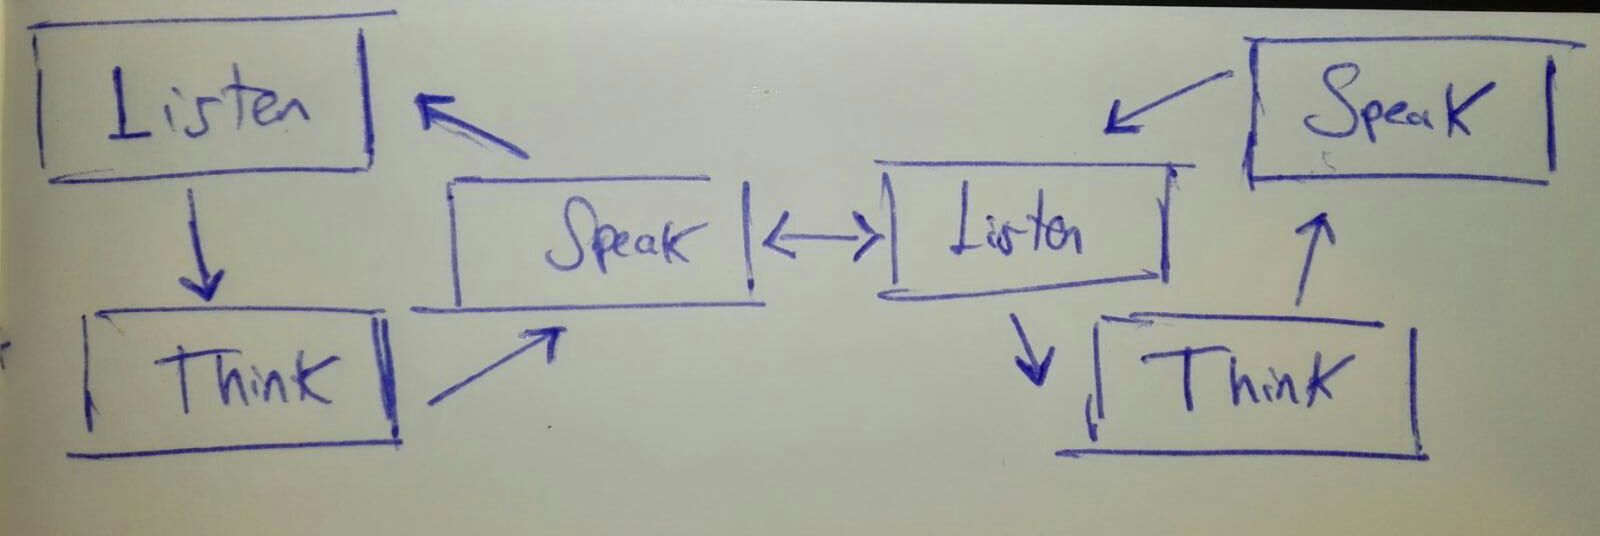 Listen
Think
Speak
Listen
Think
Speak